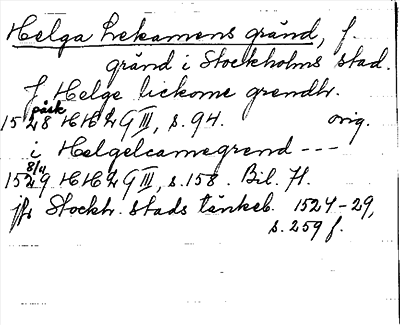 Helga Lekamens gränd, f.
gränd i Stockholms stad.
f Helge lickome grendh.
påsk
1528 HH 2 G III, s. 94. orig.
i Helgelcamegrend ---
8/4
1529 HH 2 G III, s. 158. Bil. 71.
jfr Stockh. stads tänkeb. 1524-29,
s. 259 f.